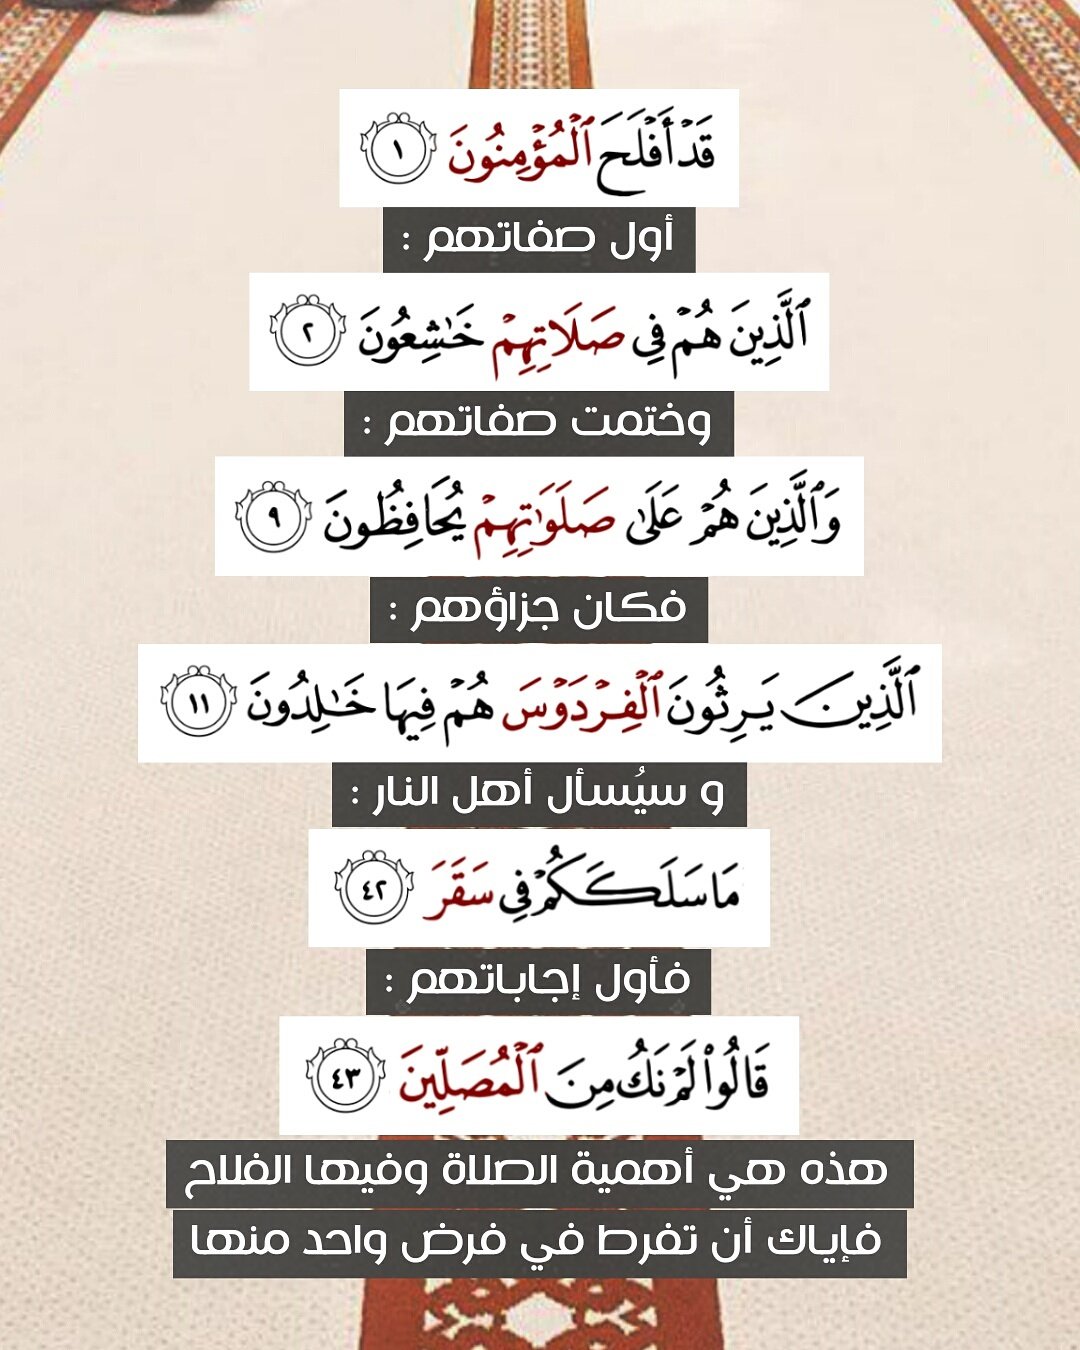 قَدْ أَفْلَحَ ٱلْمُؤْمِنُونَ ١
أول صفاتهم :
ٱلَّذِينَ هُمْ فِي صَلَاتِهِمْ خَٰشِعُونَ ٢
وختمت صفاتهم :
وَٱلَّذِينَ هُمْ عَلَىٰ صَلَوَٰتِهِمْ يُحَافِظُونَ ٩
فكان جزاؤهم :
ٱلَّذِينَ يَرِثُونَ ٱلْفِرْدَوْسَ هُمْ فِيهَا خَٰلِدُونَ ١١
و سيُسأل أهل النار :
مَا سَلَكَكُمْ فِي سَقَرَ ٤٢
فأول إجاباتهم :
قَالُوا۟ لَمْ نَكُ مِنَ ٱلْمُصَلِّينَ ٤٣
هذه هي أهمية الصلاة وفيها الفلاح
فإياك أن تفرط في فرض واحد منها